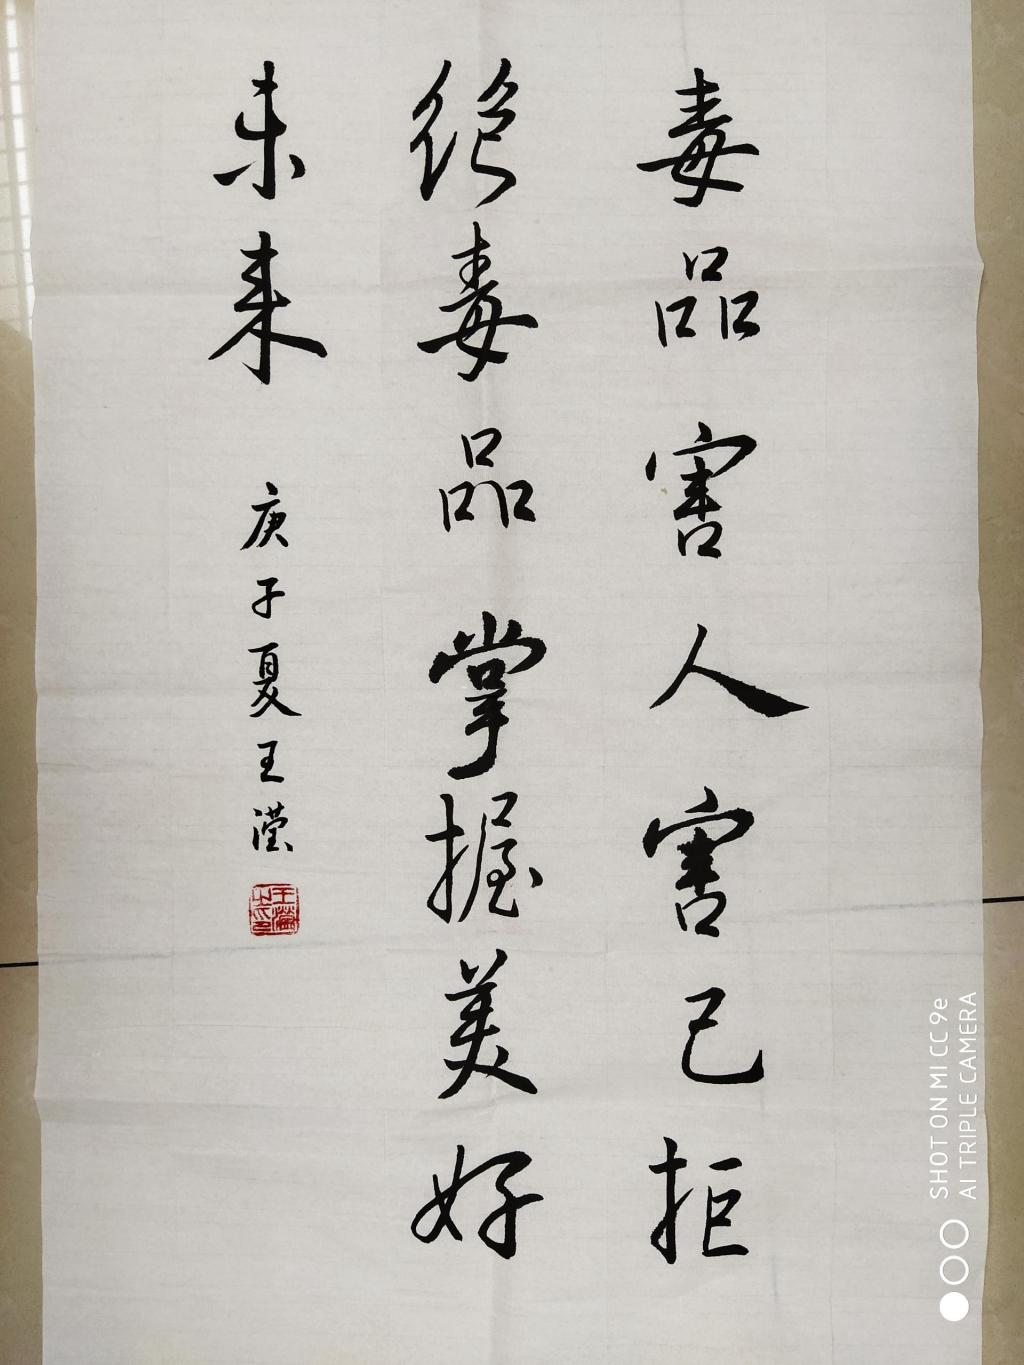 毒品害人害己拒
绝毒品掌握美好
未来
庚子夏王滢
SHOT ON MI CC 9e
AI TRIPLE CAMERA